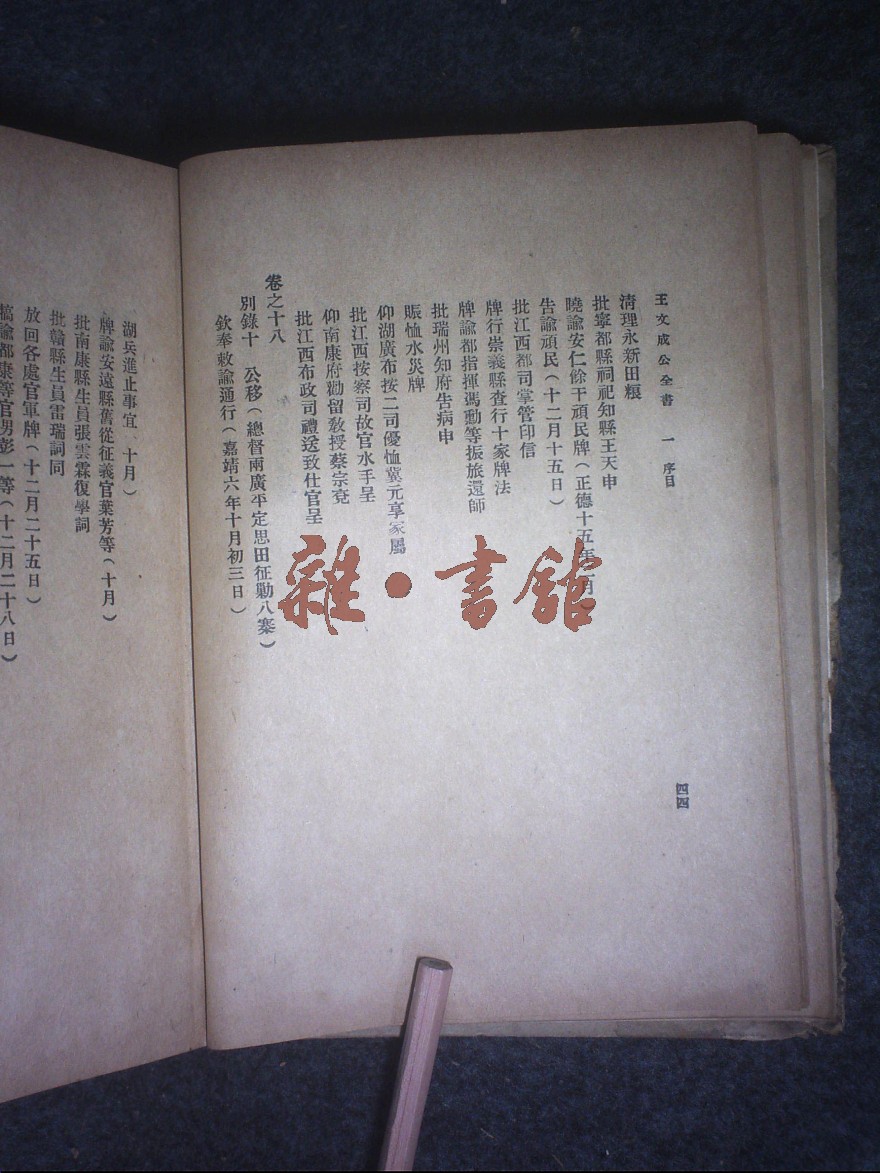 王文成公全書 一 序目
清理永新田糧
批寧都縣祠祀知縣王天申
曉諭安仁餘干頑民牌(正德十五年二月)
告諭頑民(十二月十五日)
批江西都司掌管印信
牌行崇義縣查行十家牌法
牌諭都指揮馮勳等振旅還師
批瑞州知府告病申
賑恤水災牌
仰湖廣布按二司優恤冀元亨家屬
批江西按察司故官水手呈
仰南康府勸留敎授蔡宗兗
批江西布政司禮送致仕官呈
卷之十八
別錄十 公移(總督兩廣平定思田征勦八寨)
欽奉敕諭通行(嘉靖六年十月初三日)
四四
湖兵進止事宜 十月)
牌諭安遠縣舊從征義官葉芳等(十月)
批南康縣生員張雲霖復學詞
批贛縣生員雷瑞詞同
放回各處官軍牌(十二月二十五日)
犒諭都康等官男彭一等(十二月二十八日)
雜·書館